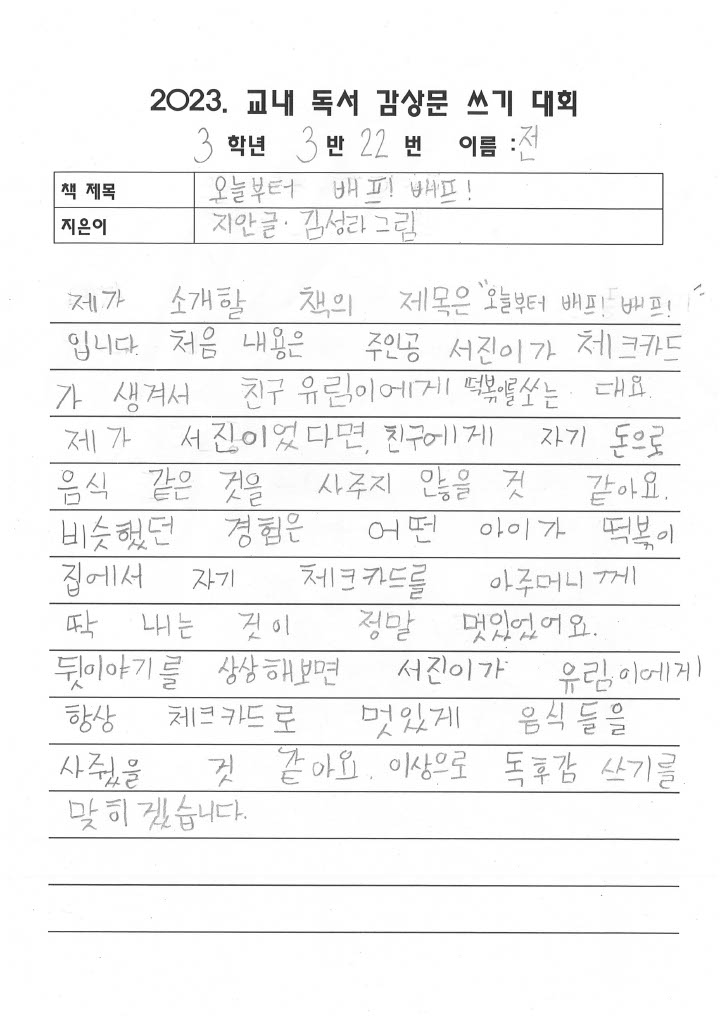 2023. 교내 독서 감상문 쓰기 대회
3 학년 3 반 22 번 이름 : 전
책 제목 오늘부터 배프! 배프!
지은이 지안글· 김성라 그림
제가 소개할 책의 제목은 "오늘부터 배프! 배프!"
입니다. 처음 내용은 주인공 서진이가 체크카드
가 생겨서 친구 유림이에게 떡볶이를 쏘는 대요.
제가 서진이었다면, 친구에게 자기 돈으로
음식 같은 것을 사주지 않을 것 같아요.
비슷했던 경험은 어떤 아이가 떡볶이
집에서 자기 체크카드를 아주머니께
딱 내는 것이 정말 멋있었어요.
뒷이야기를 상상해보면 서진이가 유림이에게
항상 체크카드로 멋있게 음식들을
사줬을 것 같아요. 이상으로 독후감 쓰기를
맞히겠습니다.